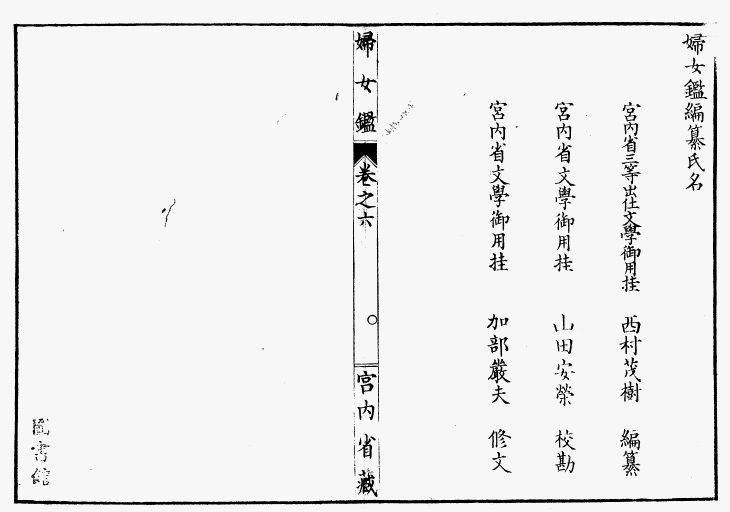 婦女鑑編纂氏名
宮內省三等出仕文學御用挂 西村茂樹 編纂
宮內省文學御用挂 山田安榮 校勘
宮內省文學御用挂 加部嚴夫 修文
婦女鑑 卷之六 宮內省藏
圖書館